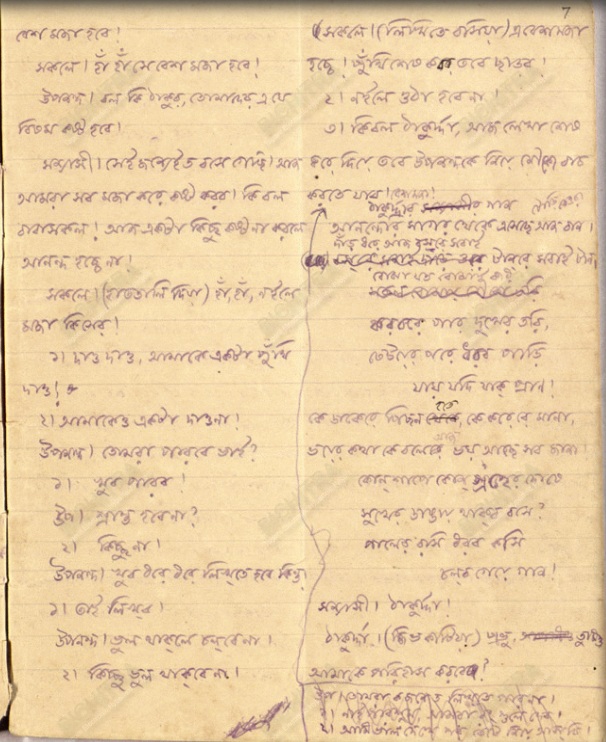 7
বেশ মজা হবে!
সকলে। হাঁ হাঁ সে বেশ মজা হবে!
উপনন্দ। বল কি ঠাকুর, তোমাদের এ যে
বিষম কষ্ট হবে!
সন্ন্যাসী। সেই জন্যেই ত বসে গেছি! আজ
আমরা সব মজা করে কষ্ট করব। কি বল
বাবাসকল! আজ একটা কিছু কষ্ট না করলে
আনন্দ হচ্ছে না!
সকলে। (হাততালি দিয়া) হাঁ, হাঁ, নইলে
মজা কিসের!
১। দাও দাও, আমাকে একটা পুঁথি
দাও!
২। আমাকেও একটা দাওনা!
উপনন্দ। তোমরা পারবে ভাই?
১। খুব পারব!
উপ। শ্রান্ত হবেনা?
২। কিছুনা।
উপনন্দ। খুব ধরে ধরে লিখতে হবে কিন্তু।
১। তাই লিখব।
উপনন্দ। ভুল থাকলে চলবেনা।
২। কিছু ভুল থাকবেনা।
সকলে। (লিখিতে বসিয়া) এ বেশ মজা
হচ্ছে! পুঁথি শেষ করব তবে ছাড়ব।
২। নইলে ওঠা হবেনা।
৩। কি বল ঠাকুর্দ্দা, আজ লেখা শেষ
করে দিয়ে তবে উপনন্দকে নিয়ে নৌকো বাচ
করতে যাব।
ঠাকুর্দ্দার গান
আনন্দেরি সাগর থেকে এসেছে আজ বান।
দাঁড় ধরে আজ বস্‌রে সবাই
টানরে সবাই টান।
বোঝা যত বোঝাই করি
করবরে পার দুখের তরী,
ঢেউয়ের পরে ধরব পাড়ি
যায় যদি যাক প্রাণ।
কে ডাকেরে পিছন হতে, কে করেরে মানা,
ভয়ের কথা কে বলে আজ ভয় আছে সব জানা।
কোন্ শাপে কোন্ গ্রহের দোষে
সুখের ডাঙায় থাকব বসে?
পালের রসি ধরব কসি
চলব গেয়ে গান।
সন্ন্যাসী। ঠাকুর্দ্দা!
ঠাকুর্দ্দা। প্রভু, তুমিও
আমাকে পরিহাস করবে?